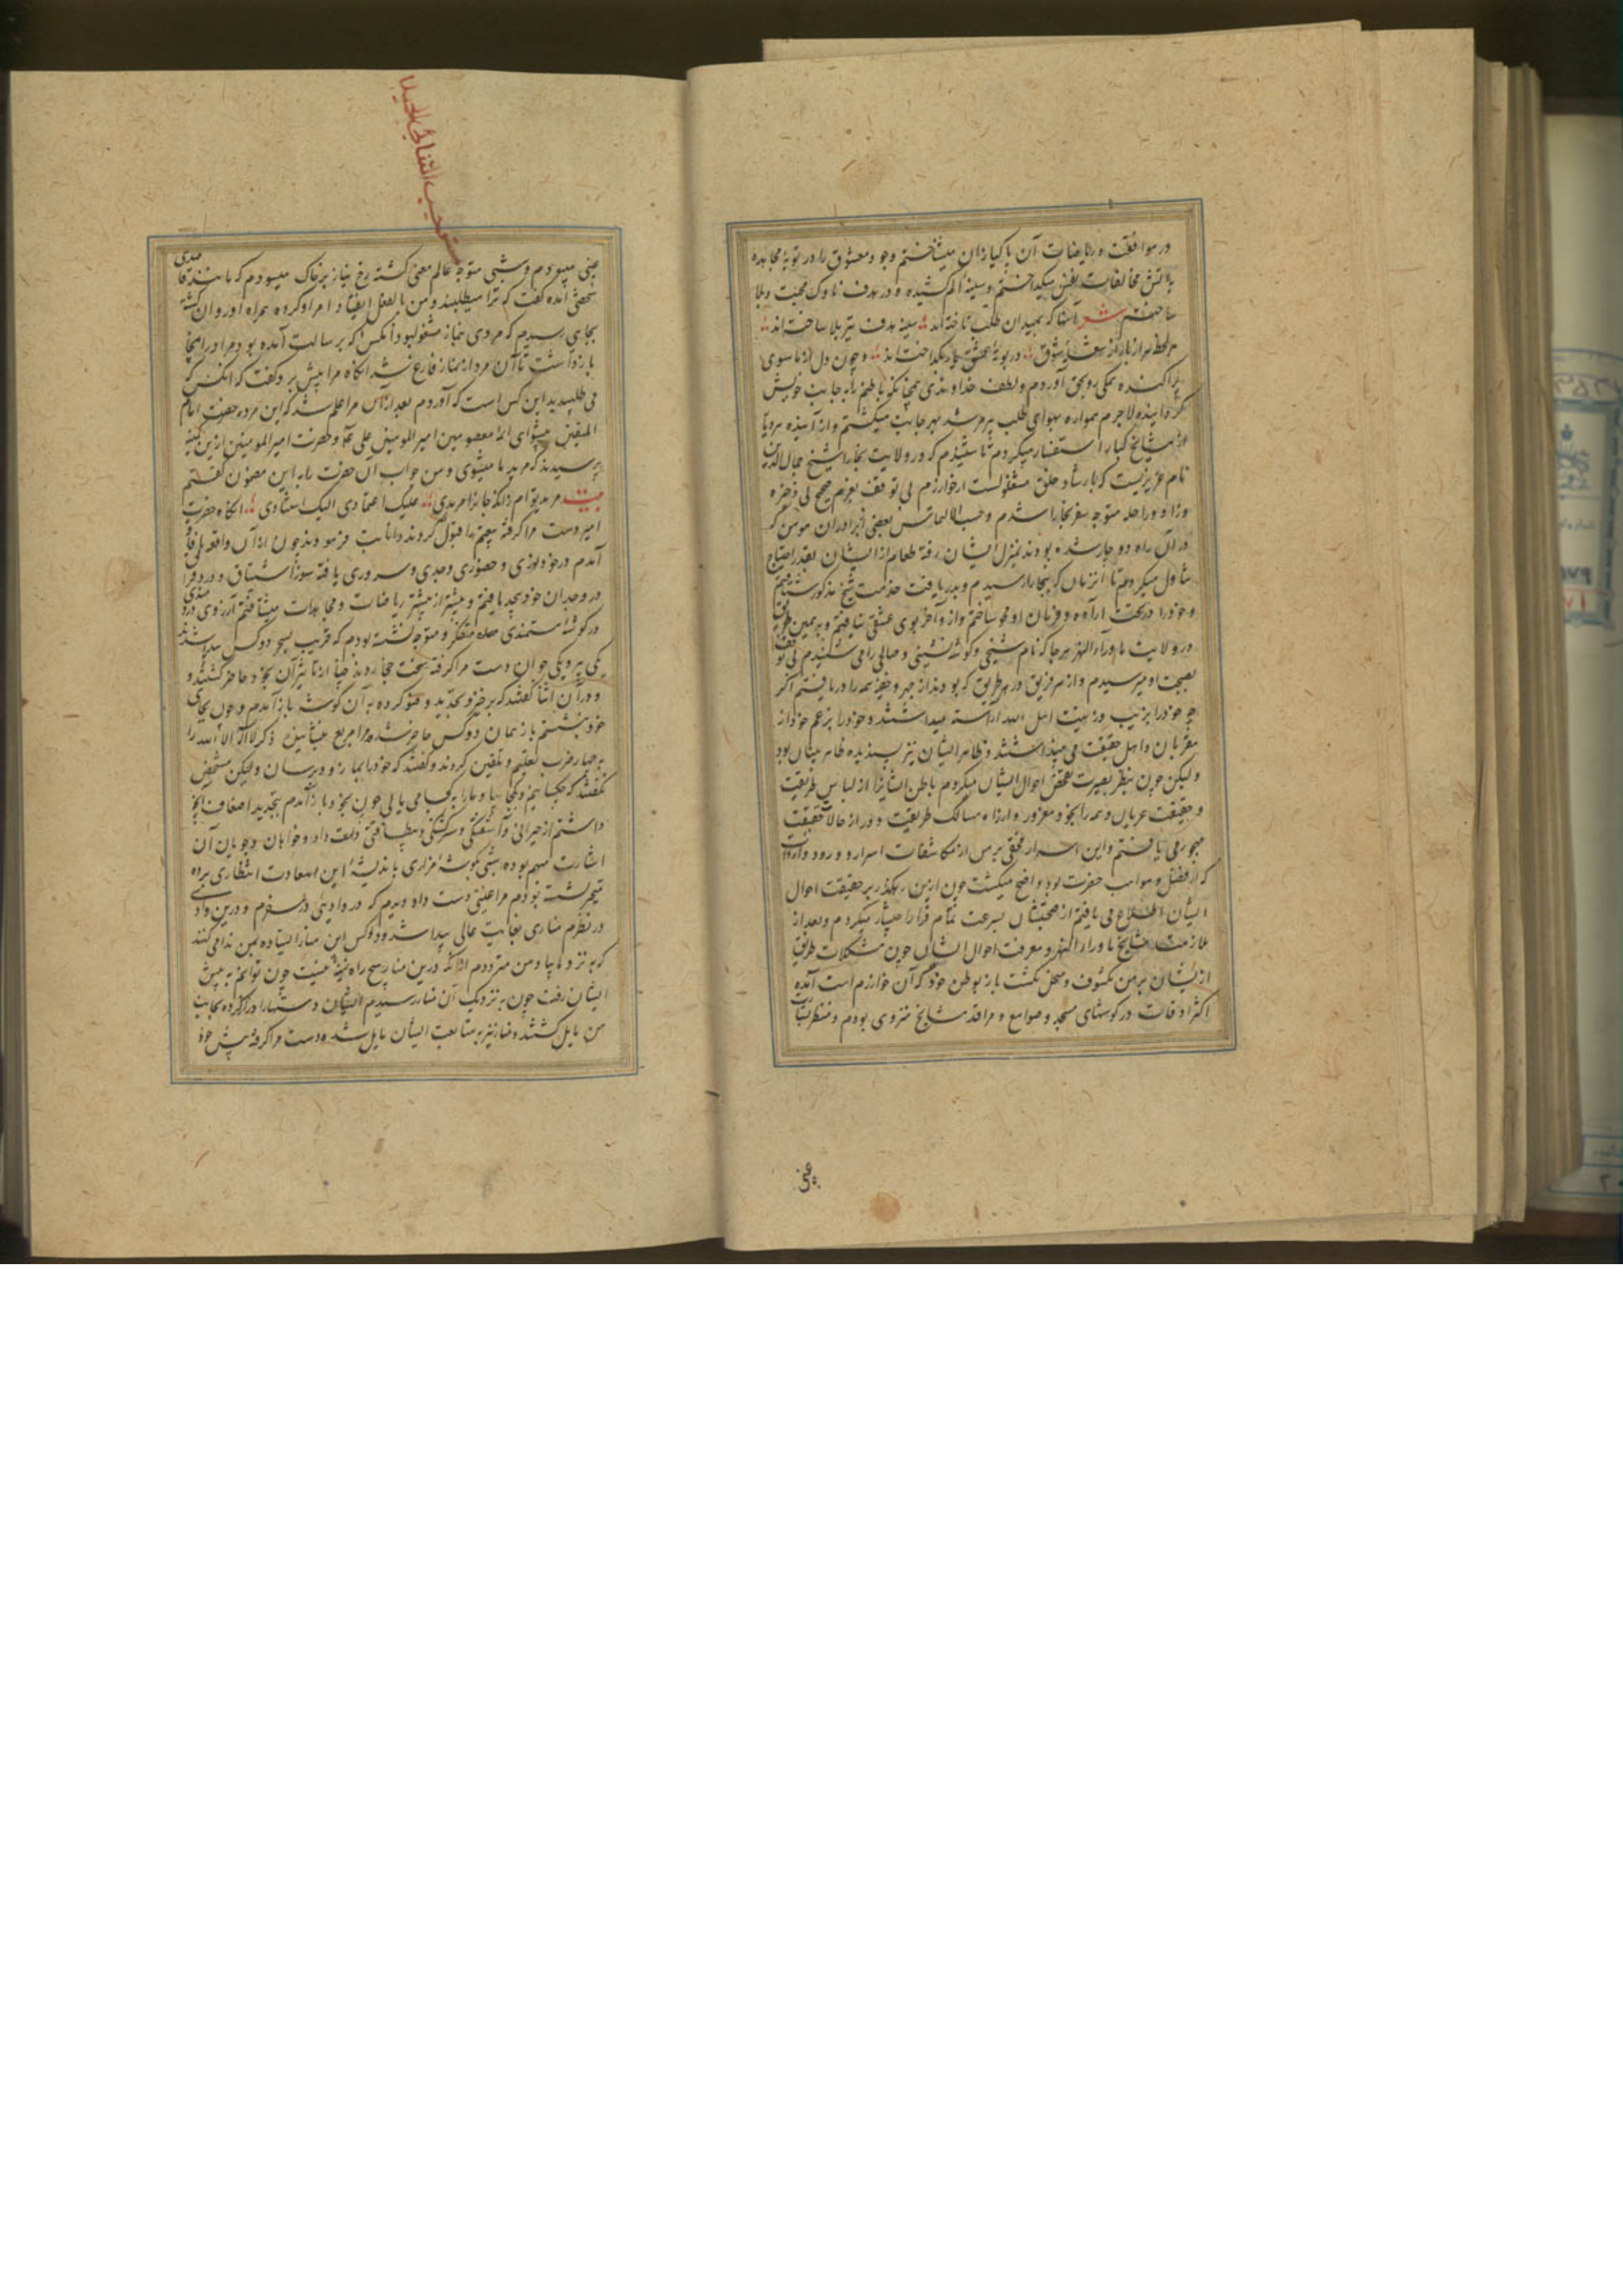 در موافقت و ریاضات آن پاکبازان میشتافتم وجود معشوق را در بوتهٔ مجاهده
بآتش مخالفات نفس میگداختم و سینه الم کشیده را هدف ناوک محبت و بلا
ساختم شعر آنها که بمیدان طلب تاخته‌اند سینه هدف تیر بلا ساخته‌اند
هر لحظه از شعلهٔ شوق در بوتهٔ عشق بگداخته‌اند و چون دل از ما سوی
پراکنده بهمگی رو بحق آوردم و لطف خداوندی باطنم را به جانب خویش
گردانیده لاجرم همواره بهوای طلب پیر مرشد بهر جانب میگشتم و از آینده
از مشایخ کبار استفسار میکردم تا شنیدم که در ولایت بخارا شیخ جمال الدین
نام عزیزیست که بارشاد خلق مشغولست از خوارزم بی توقف بعزم صحیح بی ذخیره
و زاد و راحله متوجه سفر بخارا شدم و حسب الالتماس بعضی از برادران مومن که
در آن راه دوچار شده بودند بمنزل ایشان رفته طعام از ایشان بقدر احتیاج
تناول میکردم تا آنزمان که ببخارا رسیدم و بدریافت خدمت شیخ مذکور شتافتم
و خود را در تحت اراده و فرمان او محو ساختم و از و آخر بوی عشق نیافتم و بهمین طریق
در ولایت ماوراء النهر هر جا که نام شیخی و گوشه نشینی و صالحی را می شنیدم بی توقف
بصحبت او میرسیدم و از هر فریق در هر طریق که بودند از جهر و خفیه همه را دریافتم اگر
چه خود را بزیب و زینت اهل الله آراسته میداشتند و خود را بزعم خود از
مقربان و اهل حقیقت می پنداشتند و ظاهر ایشان نیز پسندیده ظاهر بینان بود
ولیکن چون بنظر بصیرت تفحص احوال ایشان میکردم باطن ایشانرا از لباس طریقت
و حقیقت عریان و همه را بخود مغرور و از راه مسالک طریقت و دور از حالات حقیقت
مهجور می یافتم و این اسرار مخفی بر من از مکاشفات اسرار و ورود واردات
که از فضل و مواهب حضرت بود واضح میگشت چون ازین رهگذر بر حقیقت احوال
ایشان اطلاع می یافتم از صحبتشان بسرعت تمام فرار اختیار میکردم و بعد از
ملازمت مشایخ ماوراء النهر و معرفت احوال ایشان چون مشکلات طریق
ازیشان بر من مکشوف و منحل نگشت باز بوطن خود که آن خوارزم است آمده
اکثر اوقات در گوشهای مسجد و صوامع و مراقد مشایخ منزوی بودم و منتظر بشارت
مستوجب الثنائی بالجمیل
غیبی میبودم و شبی متوجه عالم معنی گشته رخ نیاز بر خاک میسودم که مانند قاصدی
شخصی آمده گفت که ترا میطلبند و من بالفعل انقیاد امر او کرده همراه او روان گشته
بجایی رسیدم که مردی بنماز مشغول بود و آنکس که برسالت آمده بود مرا در انجا
باز داشت تا آن مرد از نماز فارغ شد آنگاه مرا پیش برد و گفت که آنکس که
می طلبیدید این کس است که آوردم بعد از آن مرا اعلام شد که این مرد حضرت امام
المتقین پیشوای ائمه معصومین امیر المومنین علی است و حضرت امیر المومنین ازین کمینه
پرسیدند که مرید ما میشوی و من جواب آن حضرت را به این مضمون گفتم
بیت مرید توام زانکه جانرا مریدی علیک اعتمادی الیک استنادی آنگاه حضرت
امیر دست مرا گرفته بیعتم را قبول کردند و انابت فرمودند چون از آن واقعه با فاقه
آمدم در خود نوری و حضوری و وجدی و سروری یافته سوز اشتیاق و درد فراق
در وجدان خود بیحد یافتم و بیشتر از پیشتر ریاضات و مجاهدات میشتافتم
در گوشه مستمندی متفکر و متوجه نشسته بودم که قریب بسحر دو کس پیدا شدند
یکی پیر و یکی جوان دست مرا گرفته سخت
و در آن اثنا گفتند که برخیز و تجدید وضو کرده به آن گوشه باز آمدم و چون بجای
خود نشستم باز همان دو کس حاضر شده مرا مربع بنشانیدند ذکر لا اله الا الله را
به چهار ضرب تعلیم و تلقین کردند و گفتند که خود را بما رسان ولیکن مشخص
نگفتند که چه کسانیم و کجاییم و ما را به کجا می یابی چون بخود باز آمدم
داشتم از حیرانی و آشفتگی و سرگشتگی و خواهان و جویان آن
اشارت مبهم بوده شبی بگوشهٔ مزاری باندیشهٔ این سعادت انتظاری برده
متحیر نشسته بودم مرا غیبتی دست داد دیدم که در وادیی در سیرم و درین وادی
در نظرم مناری بغایت عالی پیدا شد و دو کس این منار ایستاده بمن ندا می کنند
که به نزد ما بیا و من مترددم از آنکه درین منار هیچ راه نیست چون توانم به پیش
ایشان رفت چون به نزدیک آن منار رسیدم ایشان دستها را دراز کرده بجانب
من مایل گشتند و منار نیز به متابعت ایشان مایل شده دست مرا گرفته پیش خود